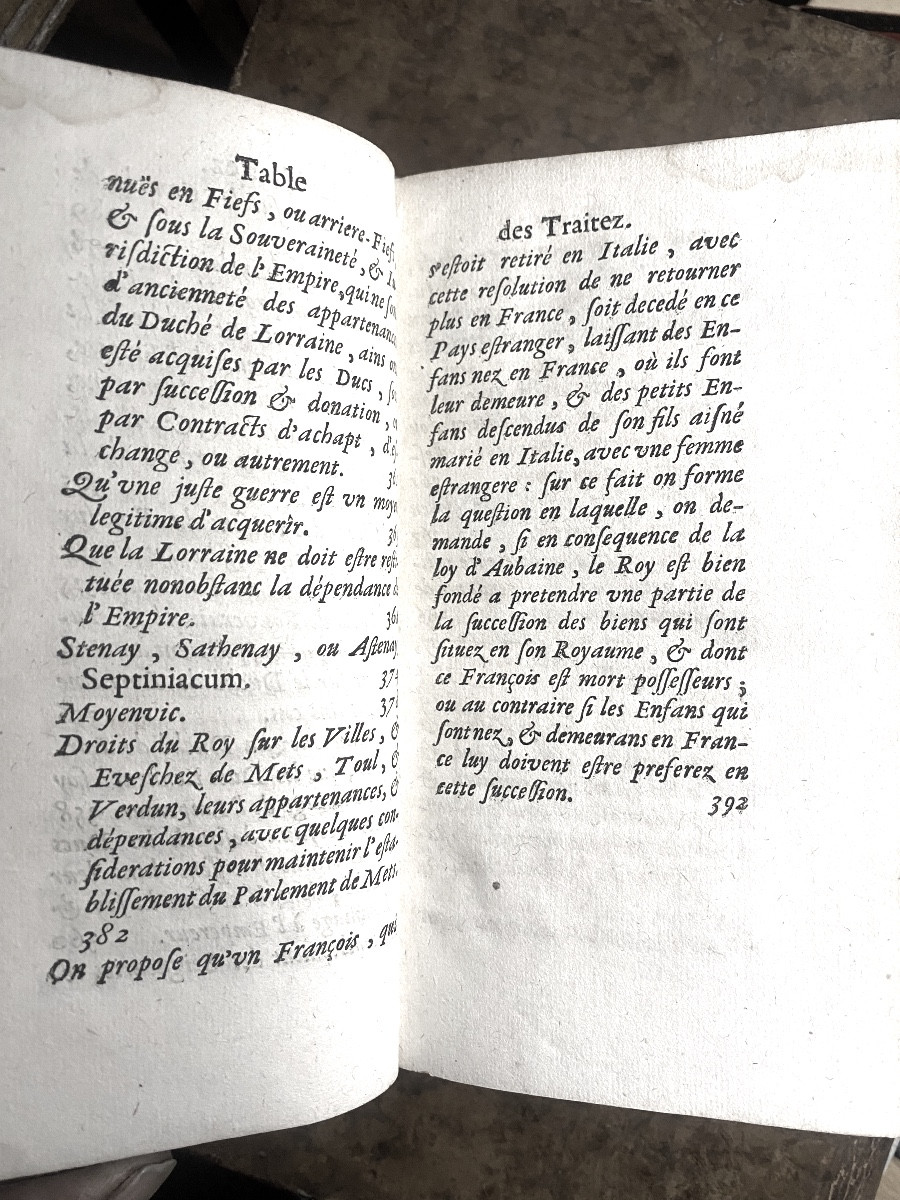 Table
nuës en Fiefs, ou arriere-Fiefs
& ſous la Souveraineté, &
riſdiction de l'Empire, qui ne
d'ancienneté des appartenanc
du Duché de Lorraine, ains
eſté acquiſes par les Ducs,
par ſucceſſion & donation,
par Contracts d'achapt,
change, ou autrement.
Qu'vne juſte guerre eſt vn moy
legitime d'acquerir.
Que la Lorraine ne doit eſtre reſt
tuée nonobſtanc la dépendance
l'Empire.
Stenay, Sathenay, ou Aſtenay
Septiniacum.
Moyenvic.
Droits du Roy ſur les Villes, &
Eveſchez de Mets, Toul, &
Verdun, leurs appartenances, &
dépendances, avec quelques con-
ſiderations pour maintenir l'eſta-
bliſſement du Parlement de Mets.
382
On propoſe qu'vn François, qui
des Traitez.
s'eſtoit retiré en Italie, avec
cette reſolution de ne retourner
plus en France, ſoit decedé en ce
Pays eſtranger, laiſſant des En-
fans nez en France, où ils font
leur demeure, & des petits En-
fans deſcendus de ſon fils aiſné
marié en Italie, avec vne femme
eſtrangere : ſur ce fait on forme
la queſtion en laquelle, on de-
mande, ſi en conſequence de la
loy d'Aubaine, le Roy eſt bien
fondé a pretendre vne partie de
la ſucceſſion des biens qui ſont
ſituez en ſon Royaume, & dont
ce François eſt mort poſſeſſeurs ;
ou au contraire ſi les Enfans qui
ſont nez, & demeurans en Fran-
ce luy doivent eſtre preferez en
cette ſucceſſion.
392